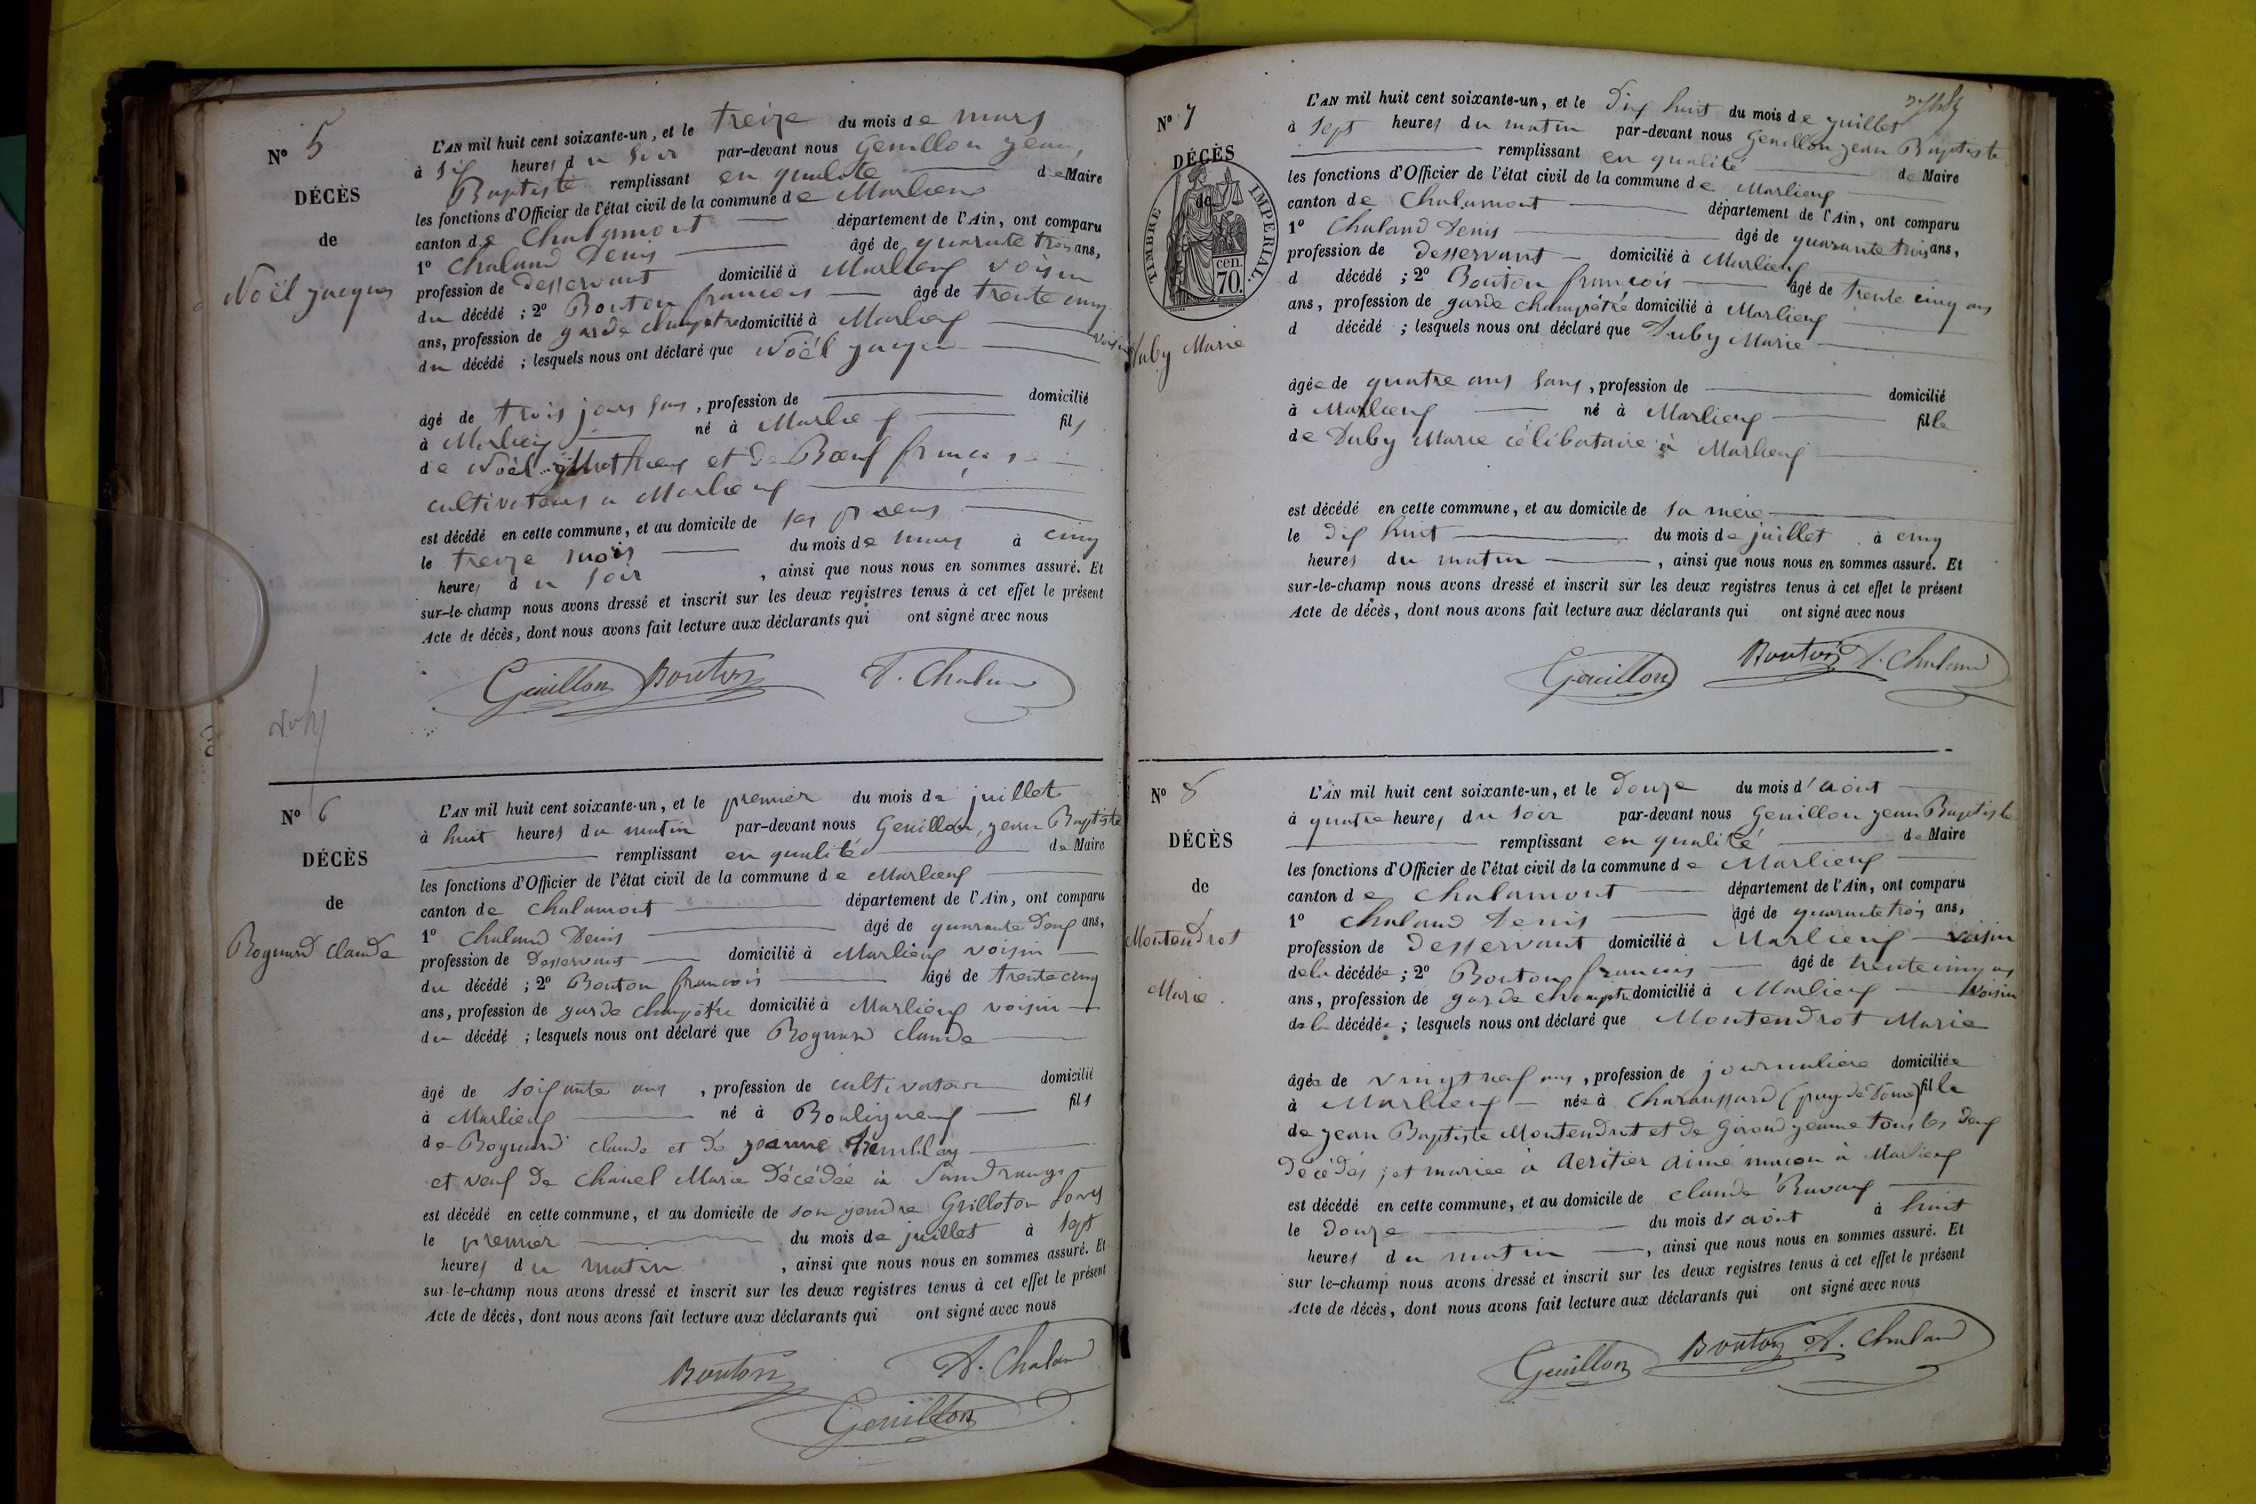 N° 5
DÉCÈS
de
Noël jacques
L'AN mil huit cent soixante-un, et le treize du mois de mars
à six heures du soir par-devant nous Genillon jean
Baptiste remplissant en qualité de Maire
les fonctions d'Officier de l'état civil de la commune de Marlieux
canton de Chalamont département de l'Ain, ont comparu
1° Chaland Denis âgé de quarante trois ans,
profession de desservant domicilié à Marlieux voisin
du décédé ; 2° Bouton françois âgé de trente cinq
ans, profession de garde champetre domicilié à Marlieux voisin
du décédé ; lesquels nous ont déclaré que Noël jacques
âgé de trois jours sans , profession de domicilié
à Marlieux né à Marlieux fils
de Noël Mathieu et de Bœuf françoise
cultivateurs a Marlieux
est décédé en cette commune, et au domicile de ses
le treize mois du mois de mars à cinq
heures du soir , ainsi que nous nous en sommes assuré. Et
sur-le-champ nous avons dressé et inscrit sur les deux registres tenus à cet effet le présent
Acte de décès, dont nous avons fait lecture aux déclarants qui ont signé avec nous
Genillon Bouton D. Chaland
N° 6
DÉCÈS
de
Boguard Claude
L'AN mil huit cent soixante-un, et le premier du mois de juillet
à huit heures du matin par-devant nous Genillon, jean Baptiste
remplissant en qualité de Maire
les fonctions d'Officier de l'état civil de la commune de Marlieux
canton de Chalamont département de l'Ain, ont comparu
1° Chaland Denis âgé de quarante deux ans,
profession de Desservant domicilié à Marlieux voisin
du décédé ; 2° Bouton françois âgé de trente cinq
ans, profession de garde champêtre domicilié à Marlieux voisin
du décédé ; lesquels nous ont déclaré que Boguard Claude
âgé de soixante ans , profession de cultivateur domicilié
à Marlieux né à Bouligneux fils
de Boguard claude et de jeanne Tremblay
et veuf de Chanel Marie Décédée à Sandrans
est décédé en cette commune, et au domicile de son gendre Grilloton Louis
le premier du mois de juillet à sept
heures du matin , ainsi que nous nous en sommes assuré. Et
sur-le-champ nous avons dressé et inscrit sur les deux registres tenus à cet effet le présent
Acte de décès, dont nous avons fait lecture aux déclarants qui ont signé avec nous
Bouton D. Chaland
Genillon
N° 7
DÉCÈS
de
TIMBRE IMPÉRIAL.
70. cen.
Duby Marie
L'AN mil huit cent soixante-un, et le dix huit du mois de juillet
à sept heures du matin par-devant nous Genillon jean Baptiste
remplissant en qualité de Maire
les fonctions d'Officier de l'état civil de la commune de Marlieux
canton de Chalamont département de l'Ain, ont comparu
1° Chaland Denis âgé de quarante trois ans,
profession de desservant domicilié à Marlieux
d décédé ; 2° Bouton françois âgé de trente cinq ans
ans, profession de garde champêtre domicilié à Marlieux
d décédé ; lesquels nous ont déclaré que Duby Marie
âgée de quatre ans sans , profession de domicilié
à Marlieux né à Marlieux fille
de Duby Marie célibataire à Marlieux
est décédé en cette commune, et au domicile de sa mère
le dix huit du mois de juillet à cinq
heures du matin , ainsi que nous nous en sommes assuré. Et
sur-le-champ nous avons dressé et inscrit sur les deux registres tenus à cet effet le présent
Acte de décès, dont nous avons fait lecture aux déclarants qui ont signé avec nous
Genillon Bouton D. Chaland
N° 8
DÉCÈS
de
Montendrot
Marie.
L'AN mil huit cent soixante-un, et le douze du mois d'août
à quatre heures du soir par-devant nous Genillon jean Baptiste
remplissant en qualité de Maire
les fonctions d'Officier de l'état civil de la commune de Marlieux
canton de Chalamont département de l'Ain, ont comparu
1° Chaland Denis âgé de quarante trois ans,
profession de Desservant domicilié à Marlieux voisin
de la décédée ; 2° Bouton françois âgé de trente cinq ans
ans, profession de garde champetre domicilié à Marlieux voisin
de la décédée ; lesquels nous ont déclaré que Montendrot Marie
âgée de vingt neuf ans , profession de journalière domiciliée
à Marlieux née à (puy-de-Dôme) fille
de jean Baptiste Montendrot et de Giroud jeanne tous les deux
Décédés, et mariée à Aeritier Aimé maçon à Marlieux
est décédé en cette commune, et au domicile de claude
le douze du mois d'août à huit
heures du matin , ainsi que nous nous en sommes assuré. Et
sur le-champ nous avons dressé et inscrit sur les deux registres tenus à cet effet le présent
Acte de décès, dont nous avons fait lecture aux déclarants qui ont signé avec nous
Genillon Bouton D. Chaland